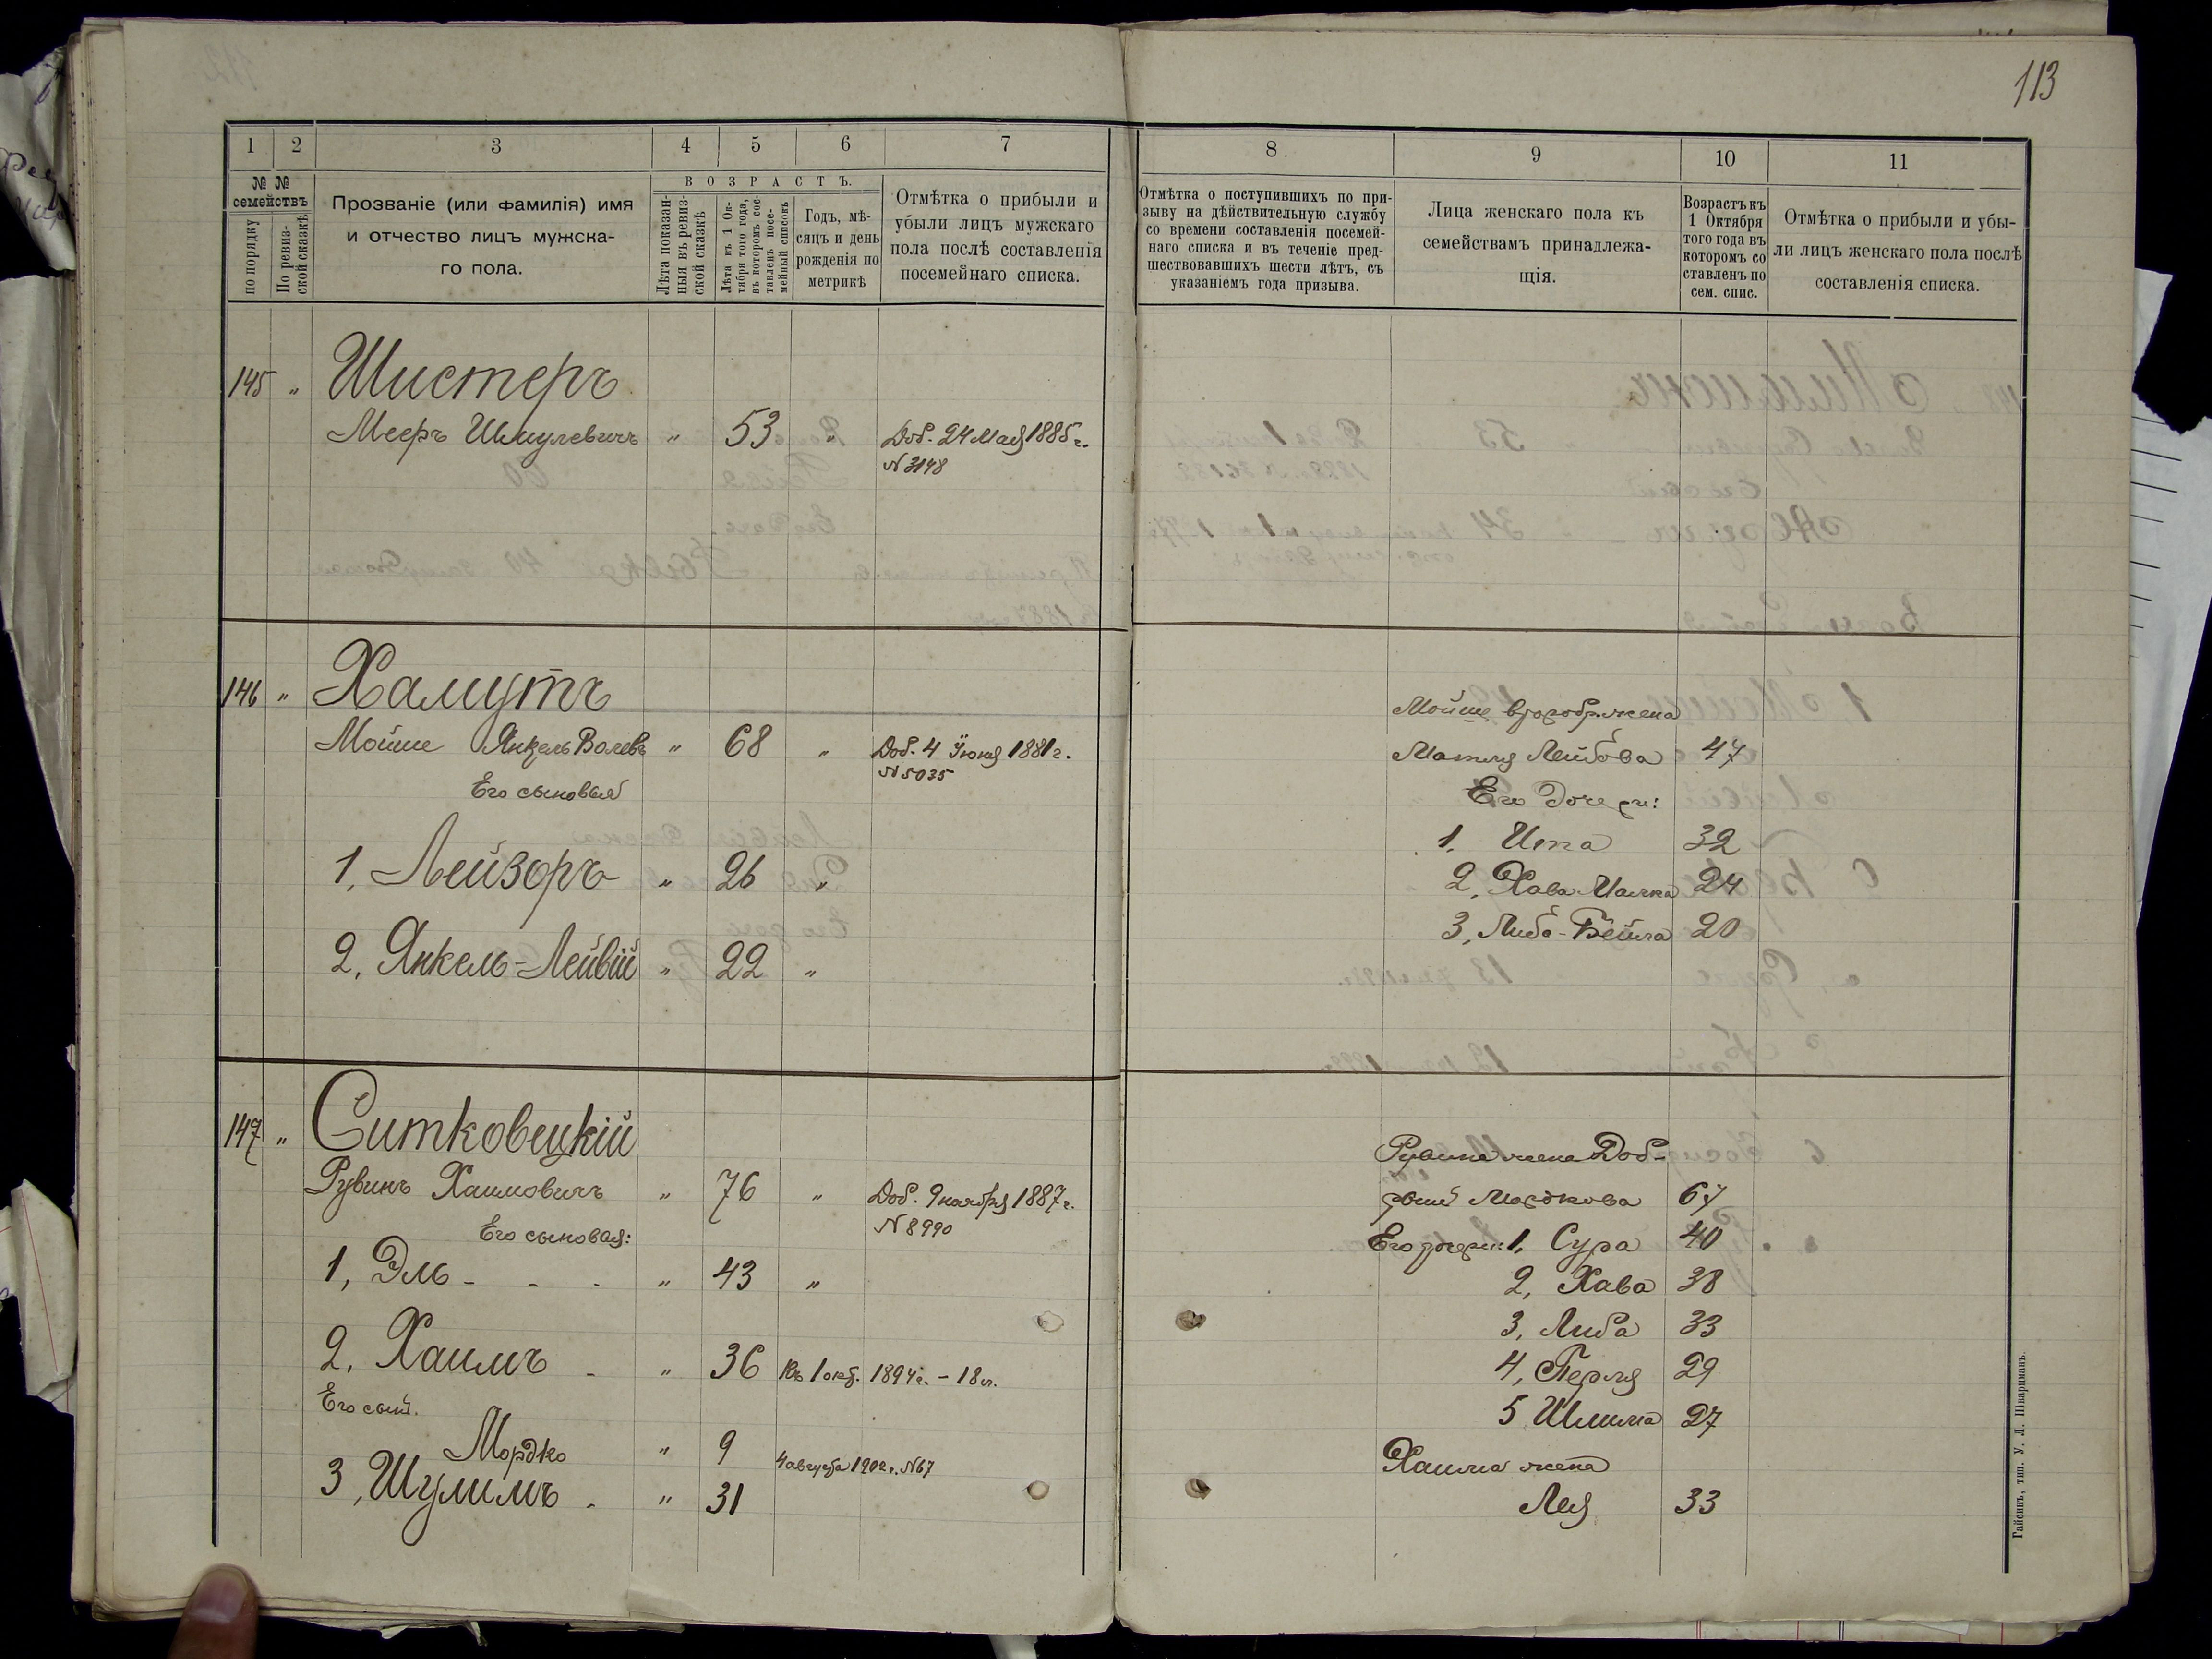 113
1
2
3
4
5
6
7
8
9
10
11
№ №
семействъ
по порядку
По ревиз-
ской сказкѣ
Прозваніе (или фамилія) имя
и отчество лицъ мужска-
го пола.
ВОЗРАСТЪ.
Лѣта показан-
ныя въ ревиз-
ской сказкѣ
Лѣта къ 1 Ок-
тября того года,
въ которомъ сос-
тавленъ посе-
мейный списокъ
Годъ, мѣ-
сяцъ и день
рожденія по
метрикѣ
Отмѣтка о прибыли и
убыли лицъ мужскаго
пола послѣ составленія
посемейнаго списка.
Отмѣтка о поступившихъ по при-
зыву на дѣйствительную службу
со времени составленія посемей-
наго списка и въ теченіе пред-
шествовавшихъ шести лѣтъ, съ
указаніемъ года призыва.
Лица женскаго пола къ
семействамъ принадлежа-
щія.
Возрастъ къ
1 Октября
того года въ
которомъ со
ставленъ по
сем. спис.
Отмѣтка о прибыли и убы-
ли лицъ женскаго пола послѣ
составленія списка.
145 " Шистеръ
Мееръ Шмулевичъ " 53 " Доб. 24 Мая 1885 г.
№ 3148
146 " Хамутъ
Мойше Янкель Волевъ " 68 " Доб. 4 Іюня 1881 г.
№ 5035
Его сыновья
1, Лейзоръ " 26 "
2, Янкель-Лейвій " 22 "
Мойше второбр. жена
Матля Лейбова 47
Его дочери:
1, Ита 32
2, Хава Малка 24
3, Либа-Бейла 20
147 " Ситковецкій
Рувинъ Хаимовичъ " 76 " Доб. 9 ноября 1887 г.
№ 8990
Его сыновья:
1, Эль - - - " 43 "
2, Хаимъ - " 36 Къ 1 окт. 1894 г. - 18 л.
Его сынъ
Мордко " 9
4 августа 1902 г. № 67
3, Шулимъ - " 31
Рувина жена Доб-
рыш Мордкова 67
Его дочери: 1, Сура 40
2, Хава 38
3, Либа 33
4, Перля 29
5 Шлима 27
Хаима жена
Лея 33
Гайсинъ, тип. У. Л. Шварцманъ.